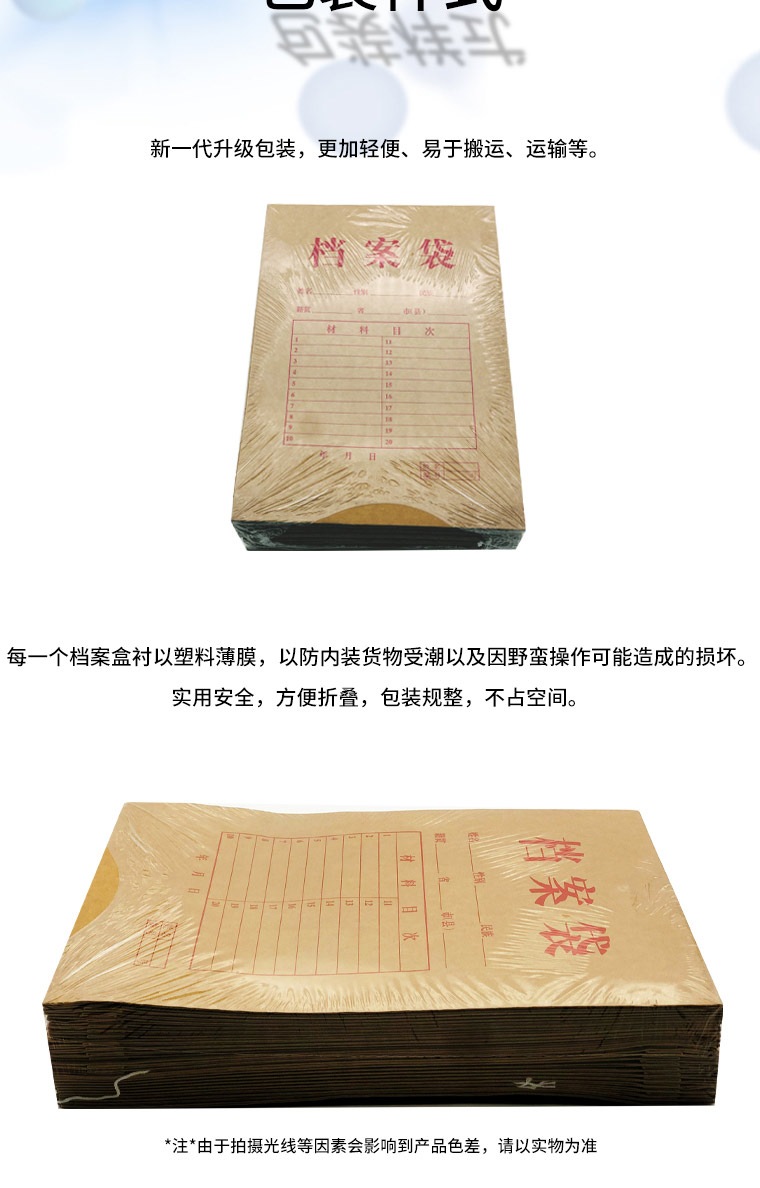 包装样式
包装样式
新一代升级包装，更加轻便、易于搬运、运输等。
档案袋
省 市(县)
材料目次
1 11
2 12
3 13
4 14
5 15
6 16
7 17
8 18
9 19
10 20
年月日
每一个档案盒衬以塑料薄膜，以防内装货物受潮以及因野蛮操作可能造成的损坏。
实用安全，方便折叠，包装规整，不占空间。
档案袋
姓名 性别 民族
籍贯 省 市(县)
材料目次
1 11
2 12
3 13
4 14
5 15
6 16
7 17
8 18
9 19
10 20
年月日
*注*由于拍摄光线等因素会影响到产品色差，请以实物为准